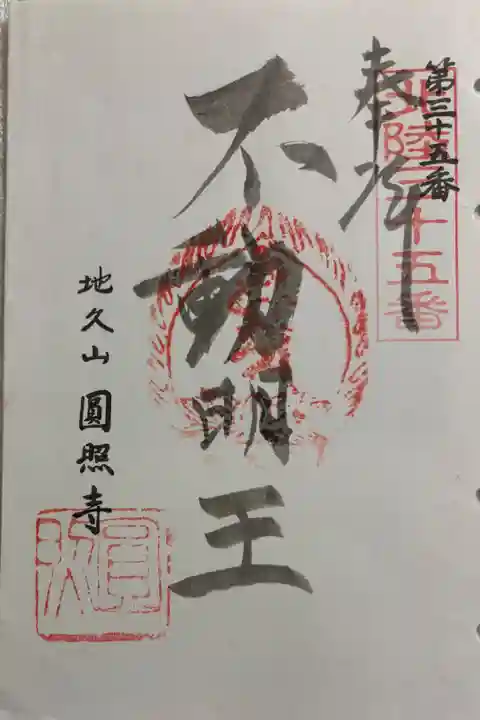 第三十五番
北陸三十五番
奉拝
不動明王
地久山 圓照寺